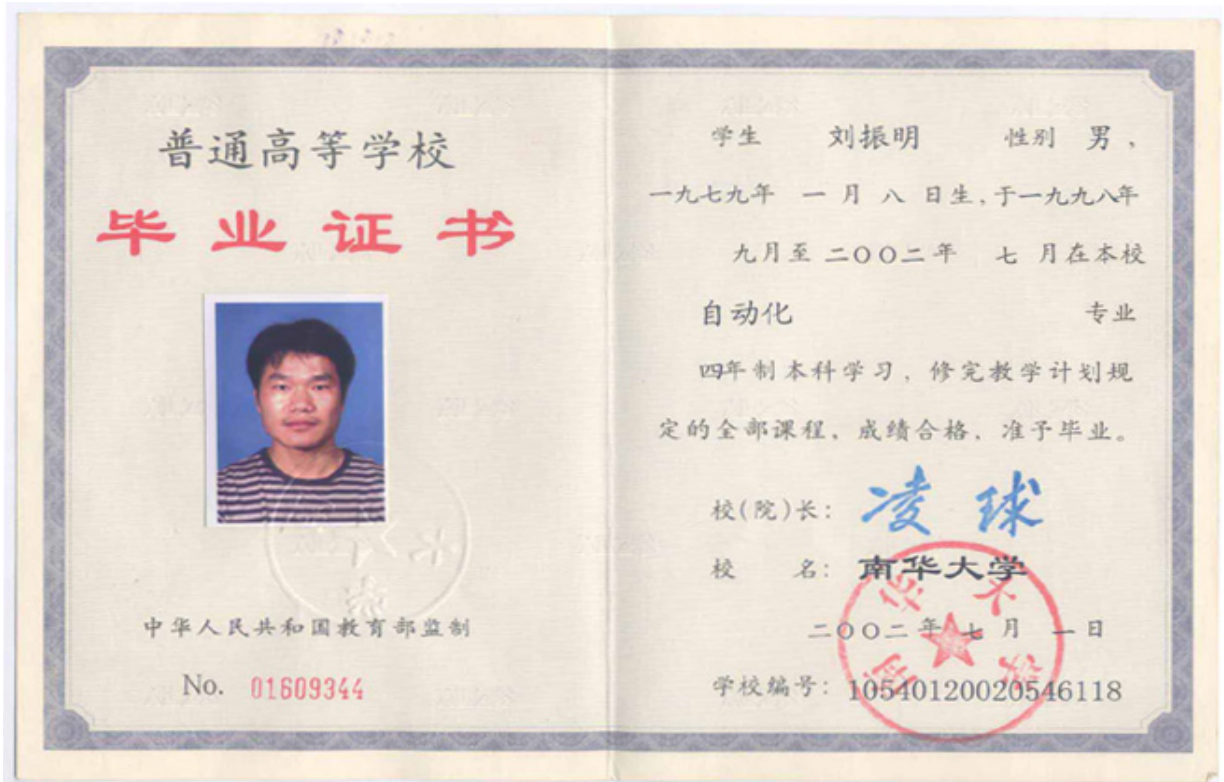 普通高等学校
毕业证书
中华人民共和国教育部监制
No. 01609344
学生 刘振明 性别 男，
一九七九年 一月八日生，于一九九八年
九月至二〇〇二年 七月在本校
自动化 专业
四年制本科学习，修完教学计划规
定的全部课程，成绩合格，准予毕业。
校(院)长：凌球
校 名：南华大学
二〇〇二年七月一日
学校编号：105401200205461​18